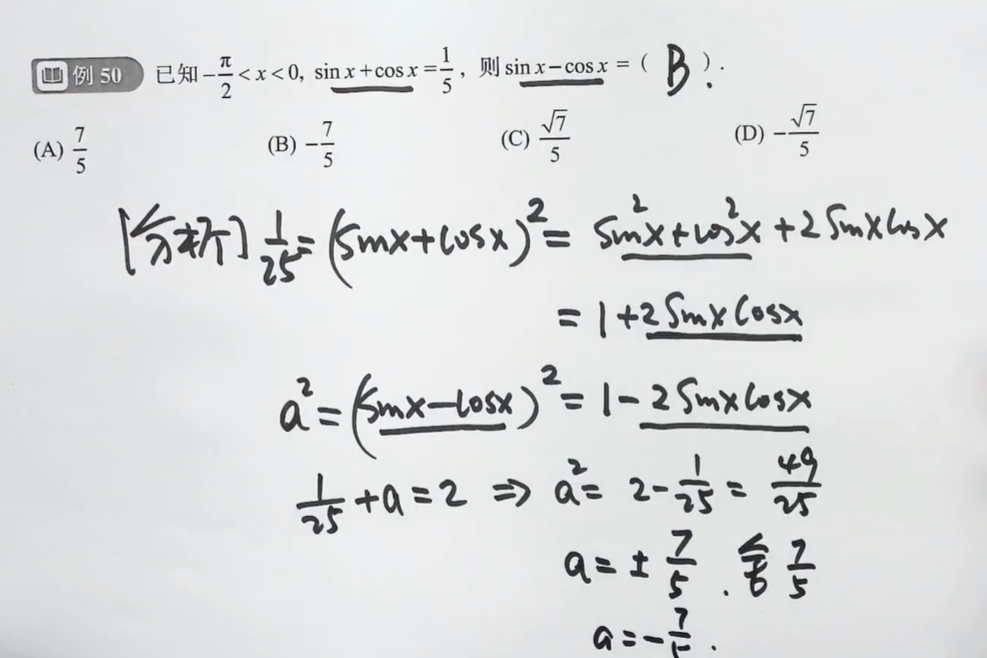 例 50 已知 -π/2 < x < 0, sin x + cos x = 1/5, 则 sin x - cos x = ( B ).
(A) 7/5 (B) -7/5 (C) √7/5 (D) -√7/5
[分析] 1/25 = (sinx+cosx)² = sin²x+cos²x+2sinxcosx
= 1+2sinxcosx
a² = (sinx-cosx)² = 1-2sinxcosx
1/25 + a = 2 ⇒ a² = 2-1/25 = 49/25
a = ± 7/5 . 舍 7/5
a = -7/5 .